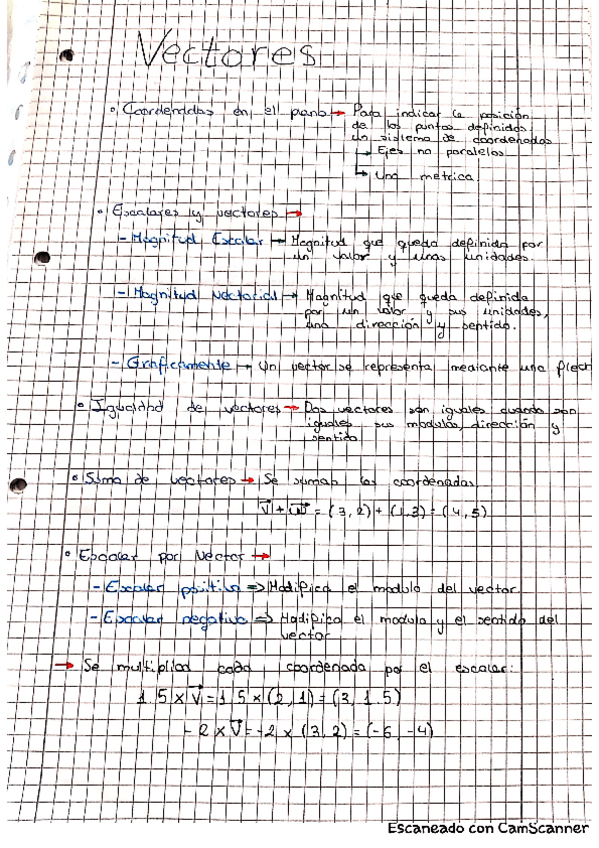 Vectores
° Coordenadas en el plano → Para indicar la posición
de los puntos definidos
un sistema de coordenadas
→ Ejes no paralelos
→ Una métrica
° Escalares y vectores →
- Magnitud Escalar → Magnitud que queda definida por
un valor y unas unidades.
- Magnitud Vectorial → Magnitud que queda definida
por un valor y sus unidades,
una dirección y sentido.
- Gráficamente → Un vector se representa mediante una flech
° Igualdad de vectores → Dos vectores son iguales cuando son
iguales sus modulos, dirección y
sentido
° Suma de vectores → Se suman las coordenadas
V + W = (3, 2) + (1, 3) = (4, 5)
° Escalar por Vector →
- Escalar positivo => Modifica el modulo del vector
- Escalar negativo => Modifica el modulo y el sentido del
vector
→ Se multiplica cada coordenada por el escalar:
1.5 x V = 1.5 x (2, 1) = (3, 1.5)
- 2 x V = -2 x (3, 2) = (-6, -4)
Escaneado con CamScanner